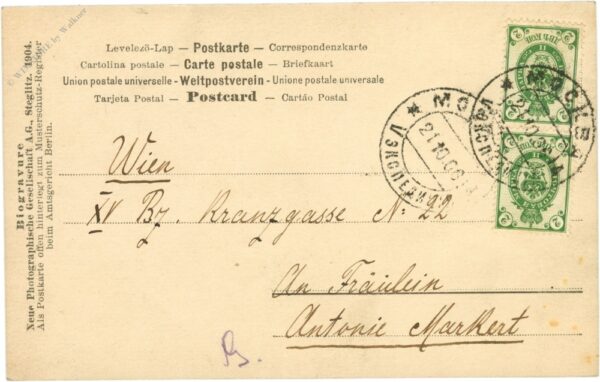 Levelező-Lap — Postkarte — Correspondenzkarte
Cartolina postale — Carte postale — Briefkaart
Union postale universelle - Weltpostverein - Unione postale universale
Tarjeta Postal — Postcard — Cartão Postal
Biogravure
Neue Photographische Gesellschaft A.G., Steglitz. 1904.
Als Postkarte offen hinterlegt zum Musterschutz-Register
beim Amtsgericht Berlin.
by Walkner
МОСКВА
21 10 06
2
2
2
Wien
XV Bz. Kranzgasse N: 22
An Fräulein
Antonie Markert